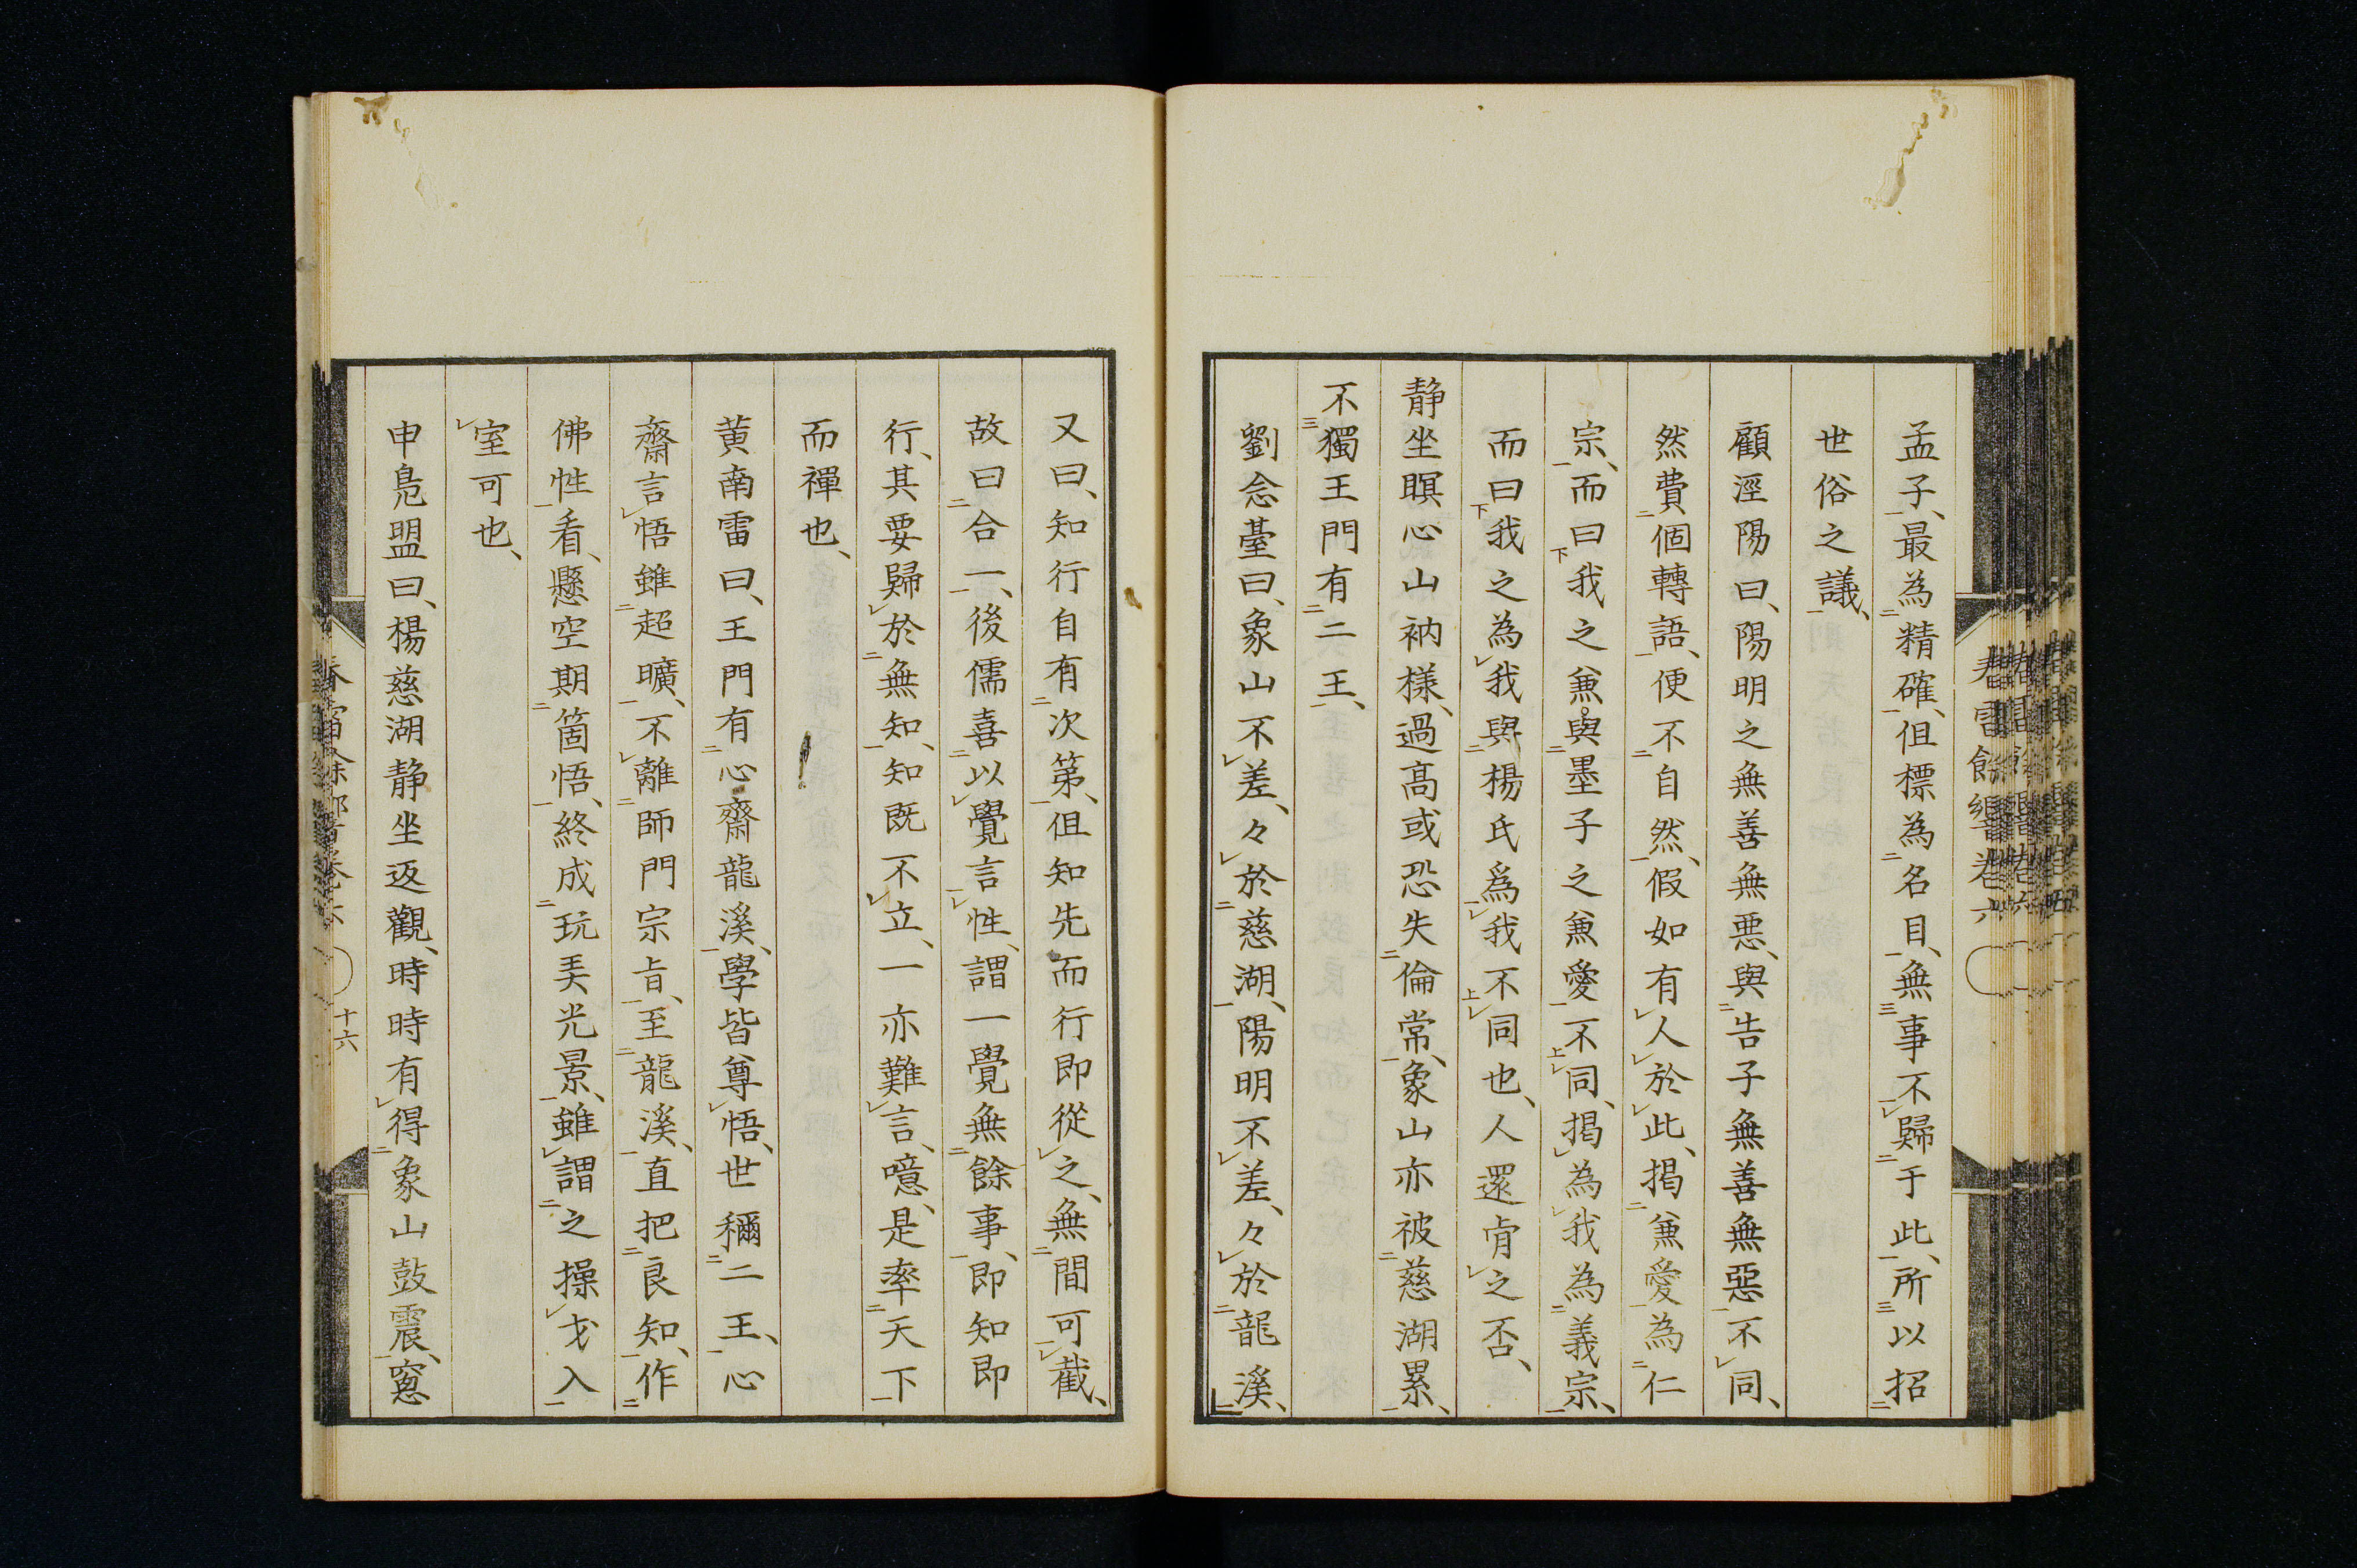 孟子、最為精確、但標為名目、無事不歸于此、所以招
世俗之議、
顧涇陽曰、陽明之無善無悪、與告子無善無惡不同、
然費個轉語、便不自然、假如有人於此、揭兼愛為仁
宗、而曰我之兼與墨子之兼愛不同、揭為我為義宗、
而曰我之為我與楊氏爲我不同也、人還肯之否、
静坐瞑心山衲様、過高或恐失倫常、象山亦被慈湖累、
不獨王門有二王、
劉念臺曰、象山不差、々於慈湖、陽明不差、々於龍溪、
又曰、知行自有次第、但知先而行即從之、無間可截、
故曰合一、後儒喜以覺言性、謂一覺無餘事、即知即
行、其要歸於無知、知既不立、一亦難言、噫、是率天下
而禪也、
黄南雷曰、王門有心齋龍溪、學皆尊悟、世稱二王、心
齋言悟雖超曠、不離師門宗旨、至龍溪、直把良知、作
佛性看、懸空期箇悟、終成玩弄光景、雖謂之操戈入
室可也、
申鳧盟曰、楊慈湖静坐返觀、時時有得象山鼓震、窻
春雷餘響卷六
十六